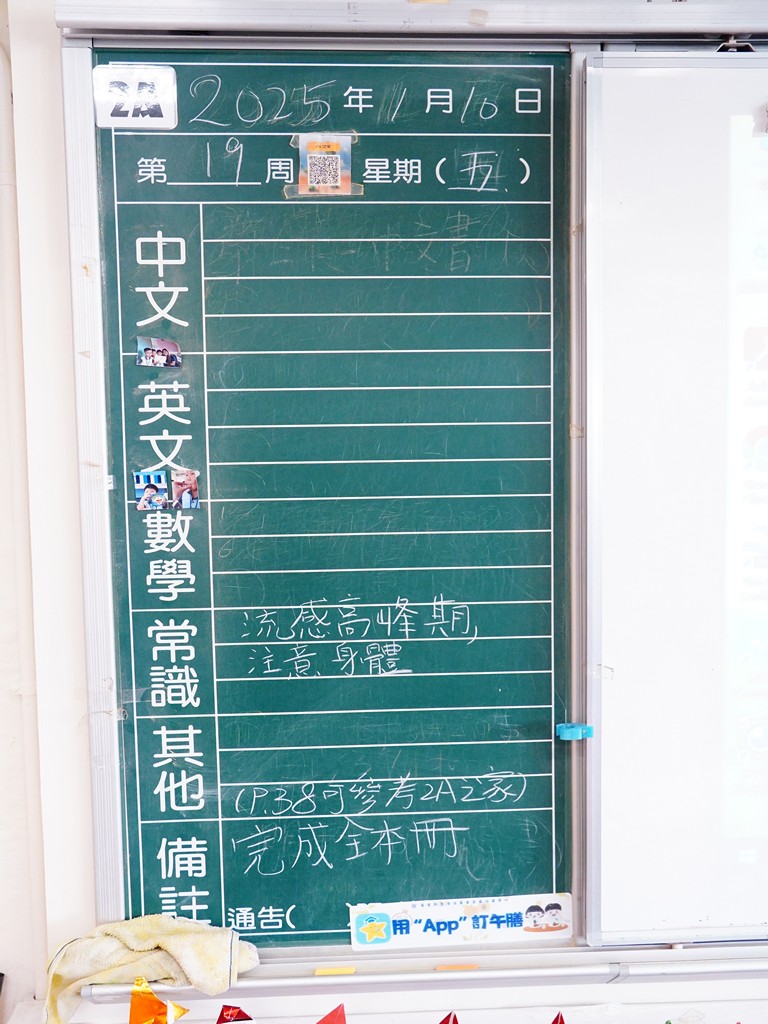 2A 2025年1月10日
第19周 星期(五)
中文
英文
數學
常識
流感高峰期,
注意身體
其他
(P.38可參考2A之家)
備註
完成全本冊
通告(
用“App”訂午膳